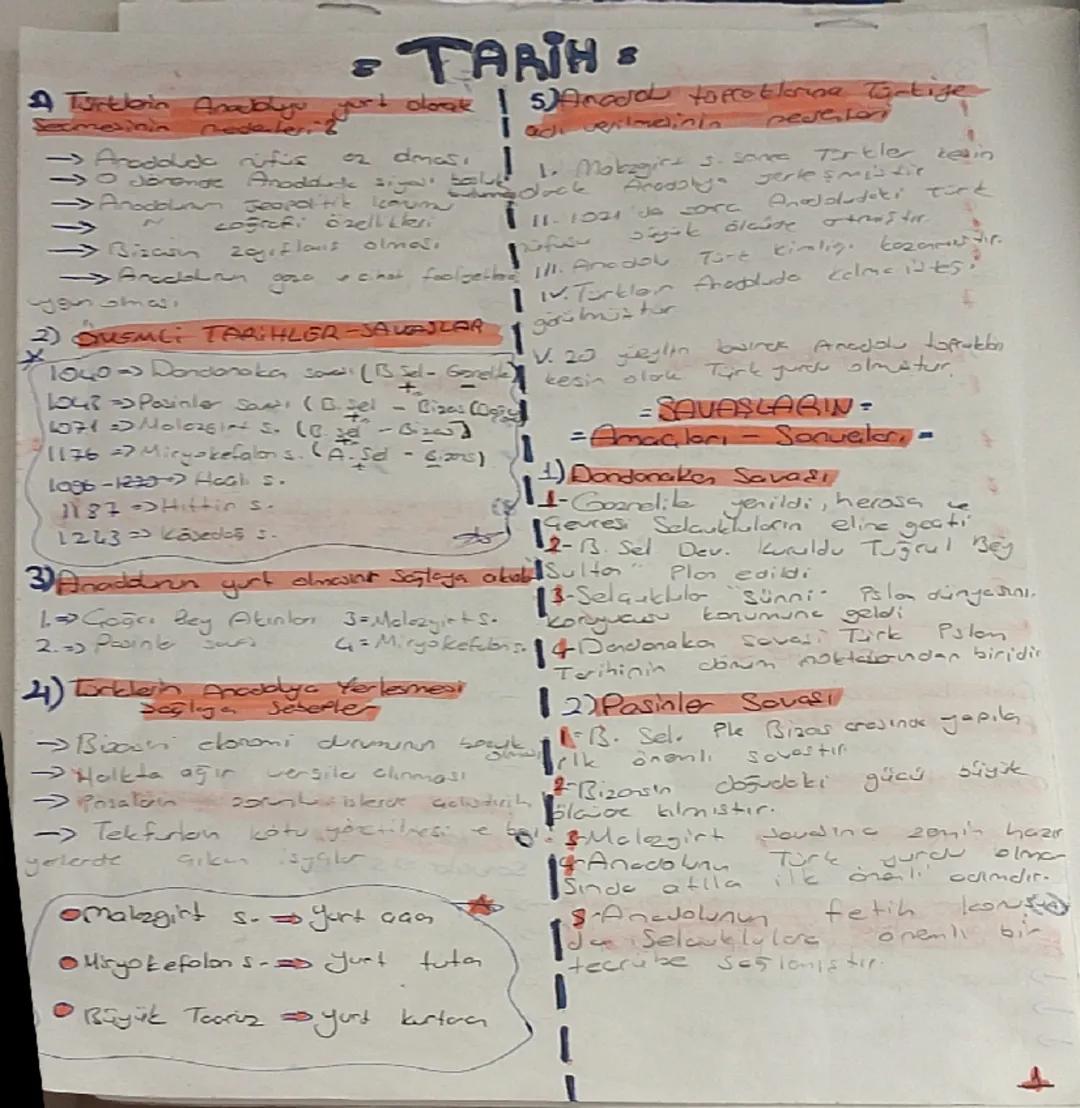 = TARİH =
1) Türklerin Anadoluyu yurt olarak
seçmesinin nedenleri?
→ Anadoluda nüfus az olması
→ O dönemde Anadoluda siyasi
→ Anadolunun jeopolitik konumu
→ " coğrafi özellikleri
→ Bizasın zayıflamış olması
→ Anadolunun gaza ve cihat
uygun olması
2) ÖNEMLİ TARİHLER - SAVAŞLAR
1040 => Dandanakan savaşı (B. Sel -
1048 => Pasinler Savaşı (B. Sel - Bizas
1071 => Malazgirt s. (B. Sel - Bizas)
1176 => Miryakefalon s. (A. Sel - Bizans)
=> Haçlı s.
1187 => Hıttin s.
1243 => Kösedağ s.
3) Anadolunun yurt olmasını Sağlaya
1. => Çağrı Bey Akınları 3 = Malazgirt s.
2. => Pasinle Savaşı 4 = Miryakefalon s.
4) Türklerin Anadoluya Yerleşmesi
Sağlaya Sebepler
→ ekonomi durumunun bozuk olması
→ Halkta ağır alınması
→ zorunlu
→ kötü yönetilmesi ve
çıkan
• Malazgirt s. => yurt açan
• Miryakefalon s. => yurt tutan
• Büyük Taaruz => yurt kurtaran
5) Anadolu topraklarına Türkiye
adı verilmesinin nedenleri
I. Malazgirt s. sonra Türkler kesin
olarak Anadoluya yerleşmiştir
II. 1071'de sonra Anadoludaki türk
nüfusu büyük ölçüde artmıştır.
III. Anadolu Türk kimliği kazanmıştır.
IV. Türklerin Anadoluda
görülmüştür
V. 20 Anadolu toprakları
kesin olarak Türk yurdu olmuştur.
= SAVAŞLARIN =
= Amaçları - Sonuçları =
1) Dandanakan Savaşı
1- Gaznelile yenildi, horasa ve
çevresi Selçukluların eline geçti
2- B. Sel Dev. kuruldu Tuğrul Bey
Sulta" ilan edildi
3- Selçuklular sünni- İslam dünyasını.
koruyucusu konumuna geldi
4- Dandanakan savaşı Türk İslam
Tarihinin dönüm noktalarından biridir
2) Pasinler Savaşı
1- B. Sel. ile Bizas arasında yapıla
ilk önemli savaştır
2- Bizansın doğudaki gücü büyük
ölçüde
3- Malazgirt zemin hazır
4- Anadolunu Türk yurdu olma
sında atıla ilk önemli adımdır.
Anadolunun fetih
Selçuklulara önemli bir
tecrübe sağlamıştır.
1